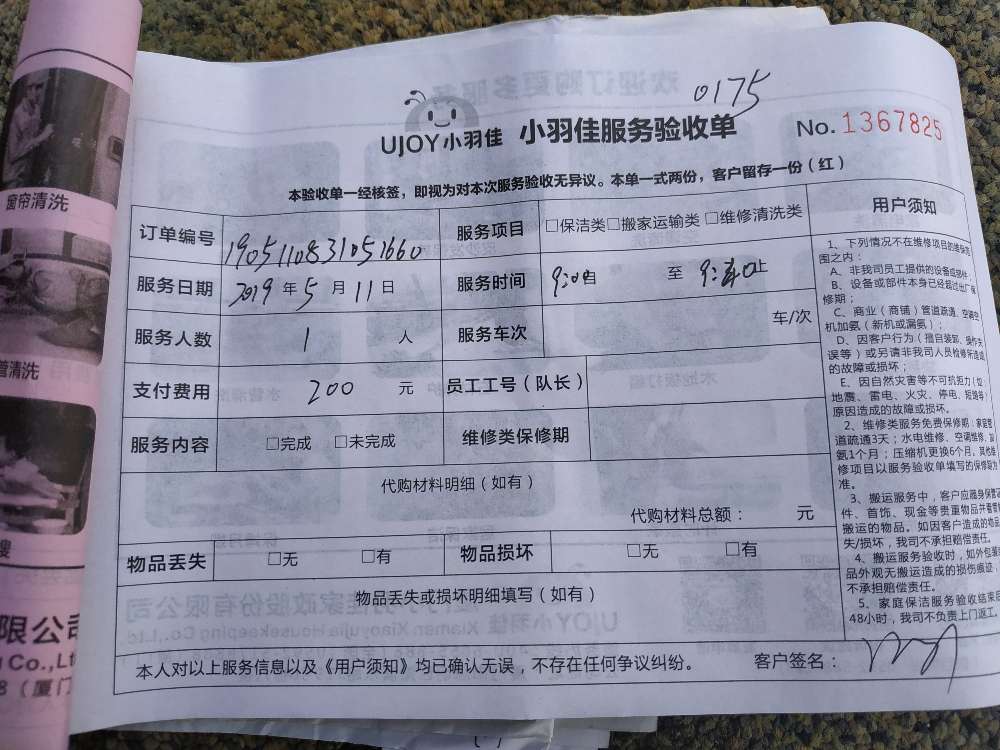 0175
UJOY小羽佳 小羽佳服务验收单 No.1367825
本验收单一经核签，即视为对本次服务验收无异议。本单一式两份，客户留存一份（红）
订单编号 1905110831051660 服务项目 □保洁类□搬家运输类 □维修清洗类
服务日期 2019 年 5 月 11 日 服务时间 至
服务人数 1 人 服务车次 车/次
支付费用 200 元 员工工号（队长）
服务内容 □完成 □未完成 维修类保修期
代购材料明细（如有）
代购材料总额： 元
物品丢失 □无 □有 物品损坏 □无 □有
物品丢失或损坏明细填写（如有）
本人对以上服务信息以及《用户须知》均已确认无误，不存在任何争议纠纷。 客户签名：
用户须知
1、下列情况不在维修项目的维保范
围之内：
A、非我司员工提供的设备或部件；
B、设备或部件本身已经超过出厂保
修期；
C、商业（商铺）管道疏通、空调空
机加氨（新机或漏氨）；
D、因客户行为（擅自装卸、操作失
误等）或另请非我司人员检修所造成
的故障或损坏；
E、因自然灾害等不可抗拒力（如：
地震、雷电、火灾、停电、短路等）
原因造成的故障或损坏。
2、维修类服务免费保修期：家庭管
道疏通3天；水电维修、空调维修、加
氨1个月；压缩机更换6个月，其他维
修项目以服务验收单填写的保修期为
准。
3、搬运服务中，客户应随身保管证
件、首饰、现金等贵重物品并看管
搬运的物品。如因客户造成的物品
失/损坏，我司不承担赔偿责任。
4、搬运服务验收时，如外包装
品外观无搬运造成的损伤痕迹，
不承担赔偿责任。
5、家庭保洁服务验收结束后
48小时，我司不负责上门返工。
窗帘清洗
管清洗
嫂
限公司
Co.,Lt
8（厦门